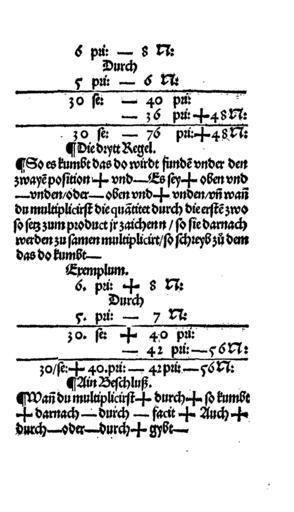 6 pri: — 8 N:
Durch
5 pri: — 6 N:
30 se: — 40 pri:
— 36 pri: + 48 N:
30 se: — 76 pri: + 48 N:
¶Die drytt Regel.
¶So es kumbt das do wirdt fundē vnder den
zwayē position + vnd —. Es sey + oben vnd
— vnden/oder — oben vnd + vnden/vñ wañ
du multiplicirst die quātitet durch die erstē zwo
so setz zum product jr zaichenn/so sie darnach
werden zu samen multiplicirt/so schreyb zů dem
das do kumbt —
Exemplum.
6. pri: + 8 N:
Durch
5. pri: — 7 N:
30. se: + 40 pri:
— 42 pri: — 56 N:
30/se: + 40. pri: — 42 pri: — 56 N:
¶Ain Beschluß.
¶Wañ du multiplicirst + durch + so kumbt
+ darnach — durch — facit + Auch +
durch — oder — durch + gybt —